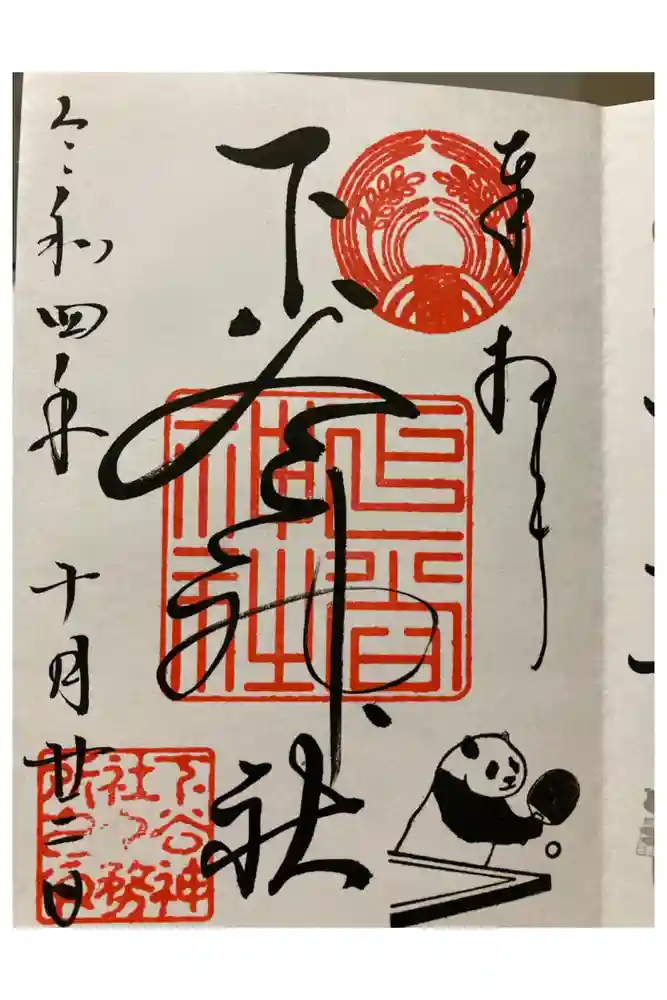 奉拝
下谷神社
下谷神社
下谷神社社務所之印
令和四年 十月廿二日